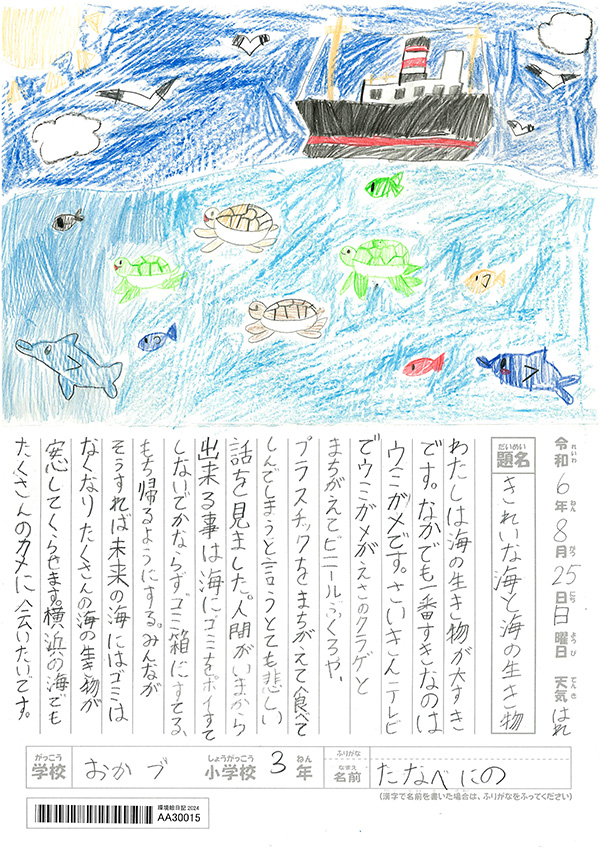 令和6年8月25日日曜日 天気 はれ
題名 きれいな海と海の生き物
わたしは海の生き物が大すき
です。なかでも一番すきなのは
ウミガメです。さいきんテレビ
でウミガメがえさのクラゲと
まちがえてビニールぶくろや、
プラスチックをまちがえて食べて
しんでしまうと言うとても悲しい
話を見ました。人間がいまから
出来る事は海にゴミをポイすて
しないでかならずゴミ箱にすてる、
もち帰るようにする。みんなが
そうすれば未来の海にはゴミは
なくなりたくさんの海の生き物が
安心してくらせます。横浜の海でも
たくさんのカメに会いたいです。
がっこう
学校 おかづ
しょうがっこう ねん
小学校 3年
ふりがな
なまえ
名前 たなべにの
(漢字で名前を書いた場合は、ふりがなをふってください)
環境絵日記 2024
AA30015